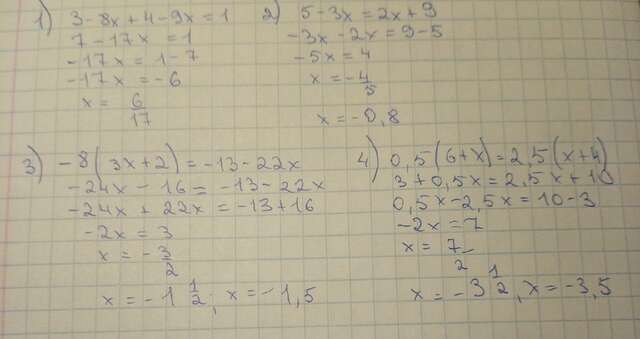 1) 3-8x+4-9x=1
7-17x=1
-17x=1-7
-17x=-6
x=6/17
2) 5-3x=2x+9
-3x-2x=9-5
-5x=4
x=-4/5
x=-0,8
3) -8(3x+2)=-13-22x
-24x-16=-13-22x
-24x+22x=-13+16
-2x=3
x=-3/2
x=-1 1/2; x=-1,5
4) 0,5(6+x)=2,5(x+4)
3+0,5x=2,5x+10
0,5x-2,5x=10-3
-2x=7
x=7/2
x=-3 1/2, x=-3,5